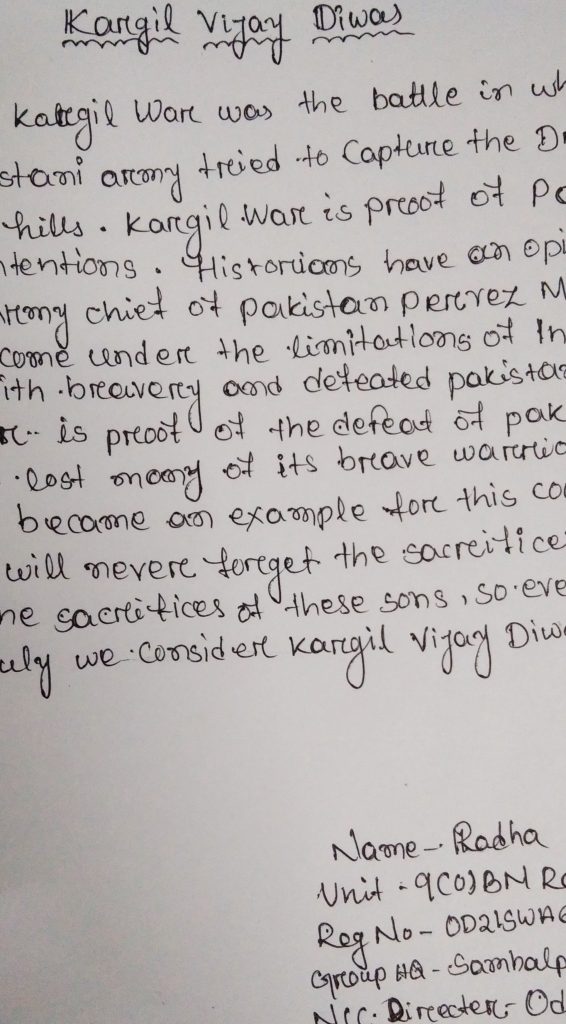 Kargil Vijay Diwas
Kargil War was the battle in wh
stani army tried to Capture the Dr
hills. Kargil War is proof of Pa
ntentions. Historians have an opi
Army chief of pakistan Pervez M
come under the limitations of In
ith bravery and defeated pakista
r.. is proof of the defeat of pak
lost many of its brave warrio
became an example for this co
will never forget the sacrifice
he sacrifices of these sons, so eve
uly we consider Kargil Vijay Diwa
Name - Radha
Unit - 9(O)BN R
Reg No - OD21SWA6
Group HQ - Sambalp
Ncc. Director - Od